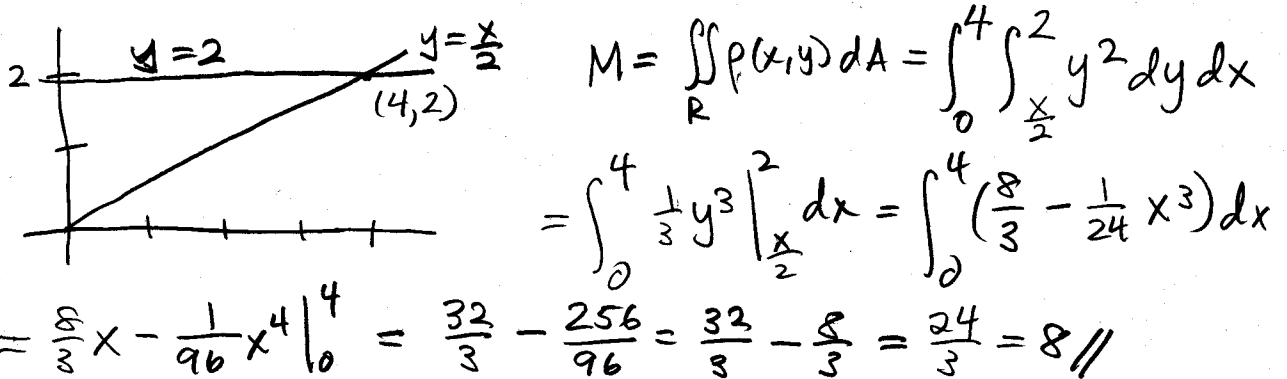 y = 2
y = x/2
2
(4,2)
M = ∬_R ρ(x,y) dA = ∫_0^4 ∫_{x/2}^2 y² dy dx
= ∫_0^4 1/3 y³ |_{x/2}^2 dx = ∫_0^4 (8/3 − 1/24 x³) dx
= 8/3 x − 1/96 x⁴ |_0^4 = 32/3 − 256/96 = 32/3 − 8/3 = 24/3 = 8 //